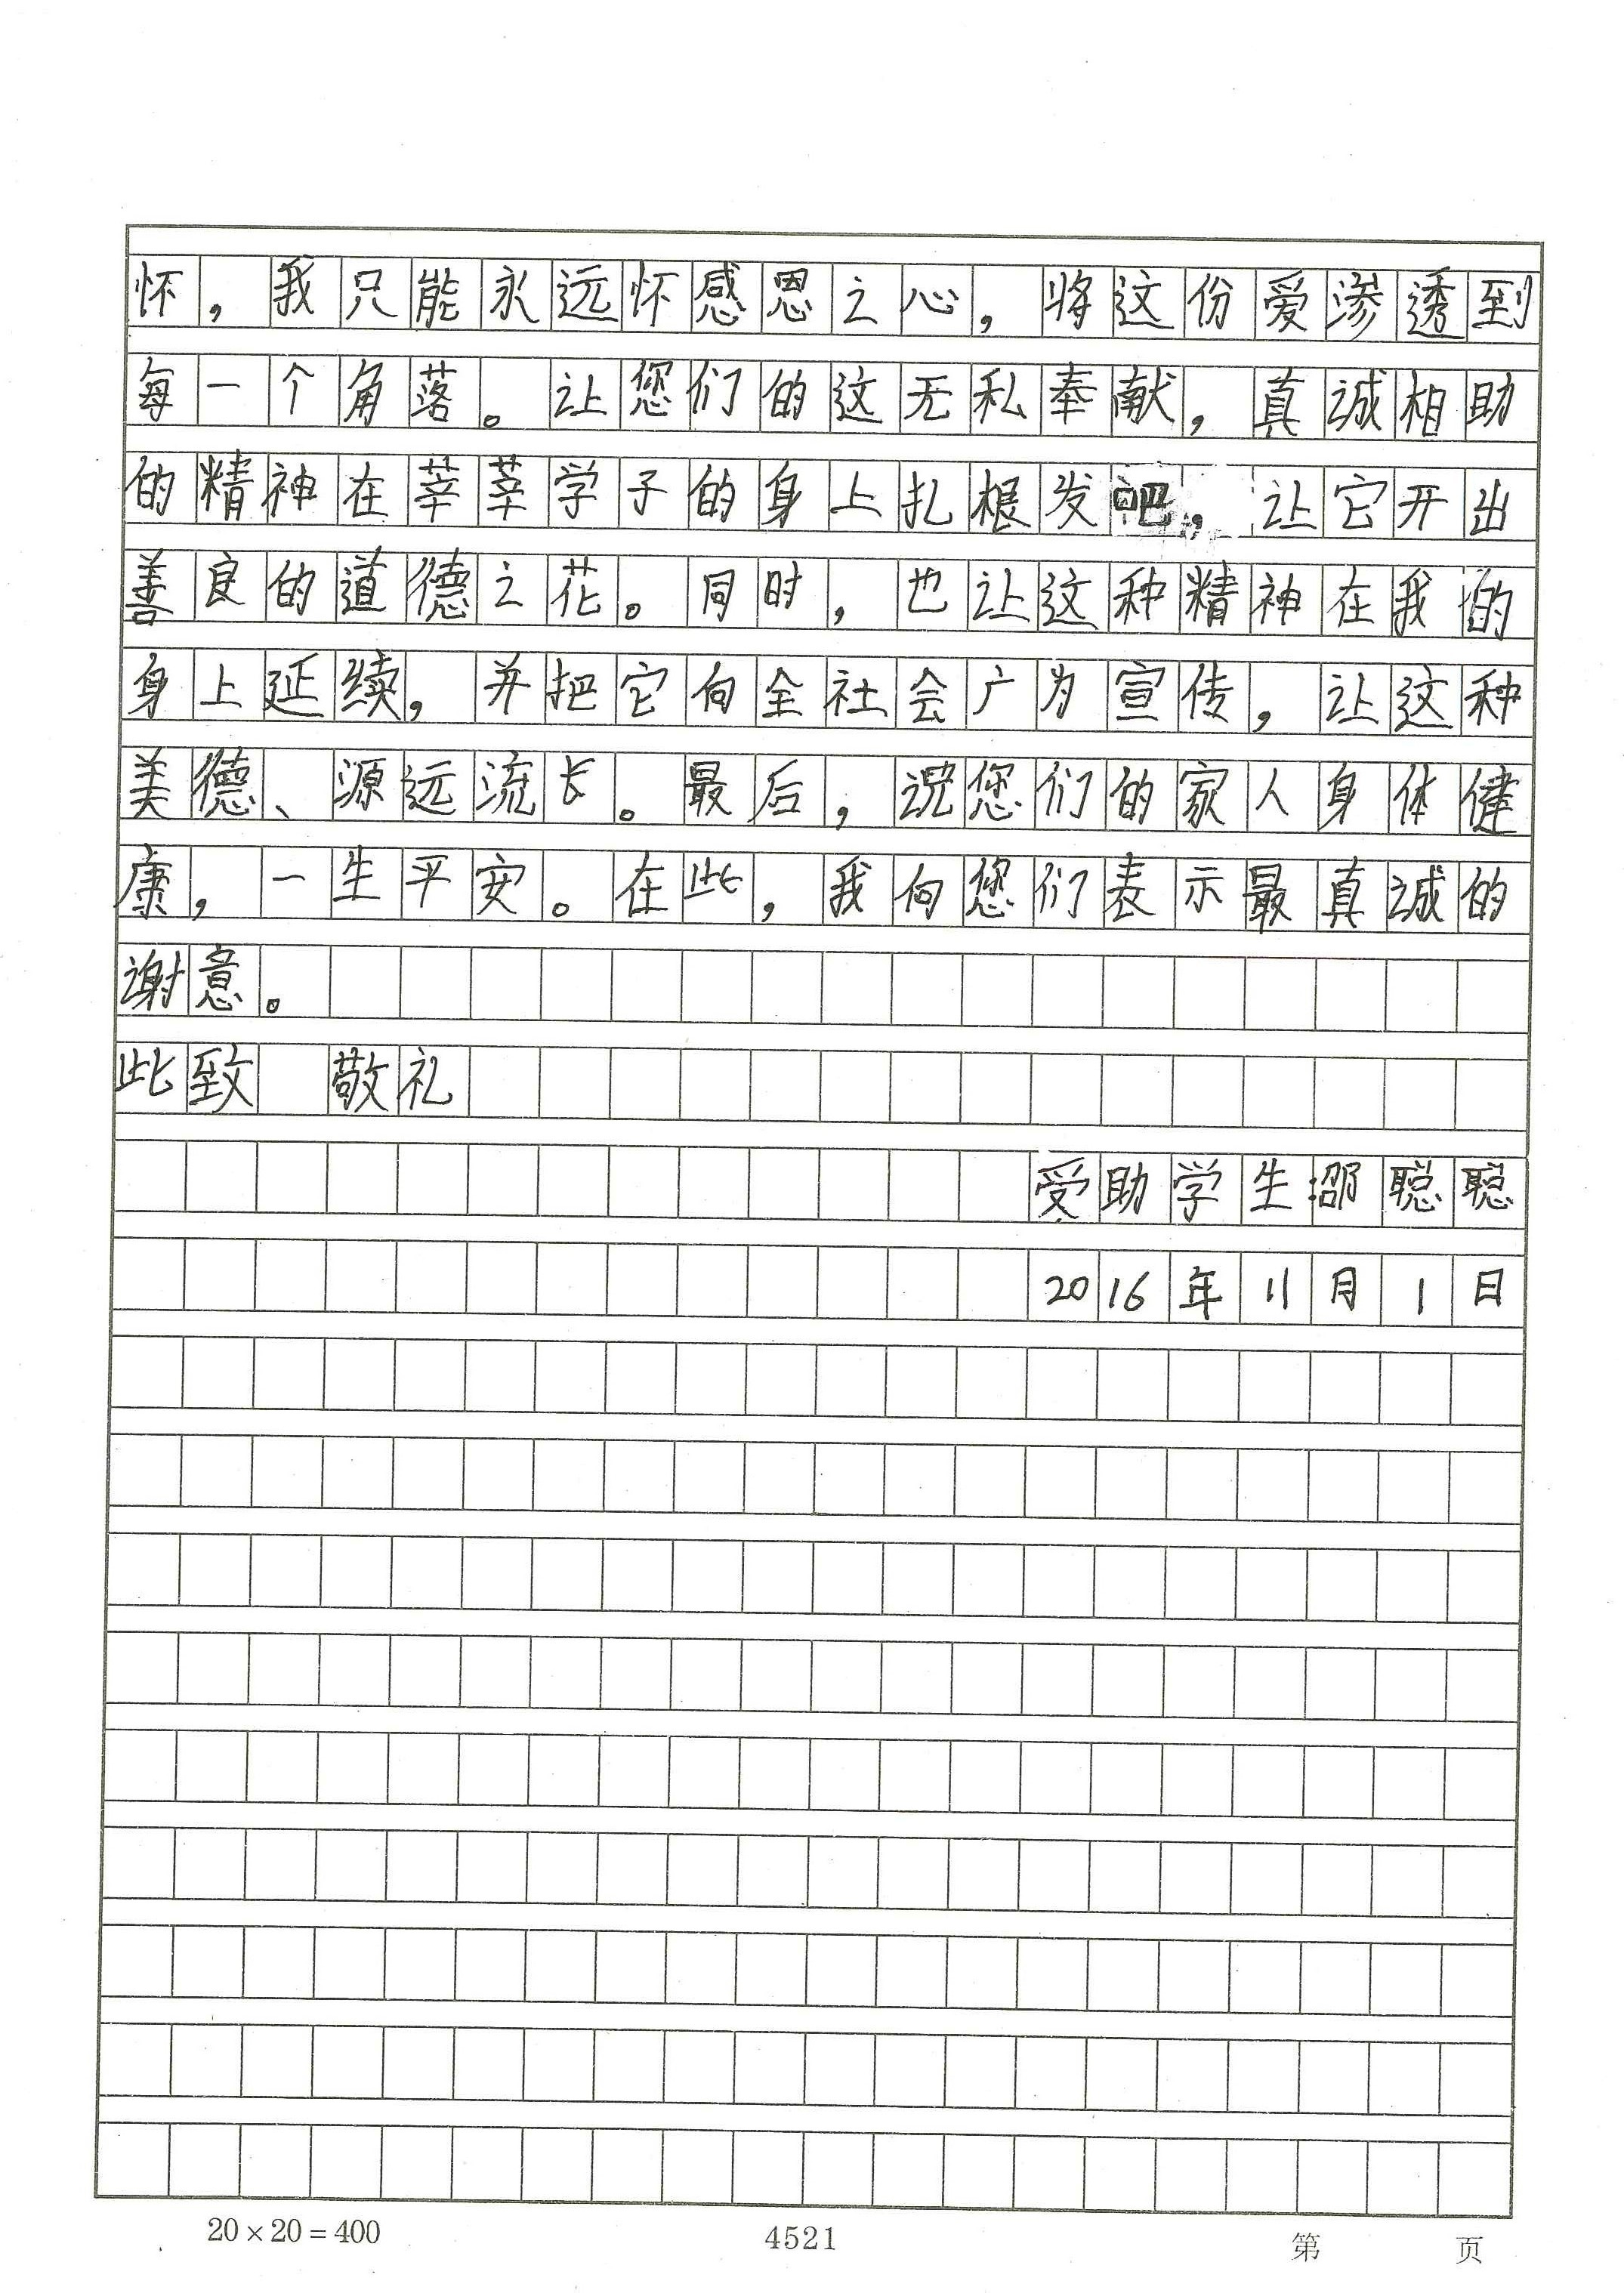 怀，我只能永远怀感恩之心，将这份爱渗透到
每一个角落。让您们的这无私奉献，真诚相助
的精神在莘莘学子的身上扎根发吧，让它开出
善良的道德之花。同时，也让这种精神在我的
身上延续，并把它向全社会广为宣传，让这种
美德、源远流长。最后，祝您们的家人身体健
康，一生平安。在此，我向您们表示最真诚的
谢意。
此致 敬礼
受助学生:邵聪聪
2016年11月1日
20×20=400 4521 第 页